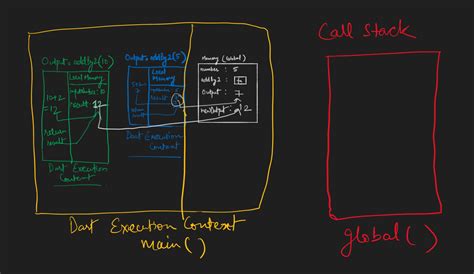 Call Stack
Output = addby2(10)
Output = addby2(5)
Memory (Global)
number : 5
addby2 : f
Output : 7
newOutput : 12
Local
Memory
inputNumber : 10
result : 12
10+2
=12
return
result
Dart Execution
Context
Local
Memory
5+2
result
return
result
Dart Execution
Context
Dart Execution Context
main()
global()